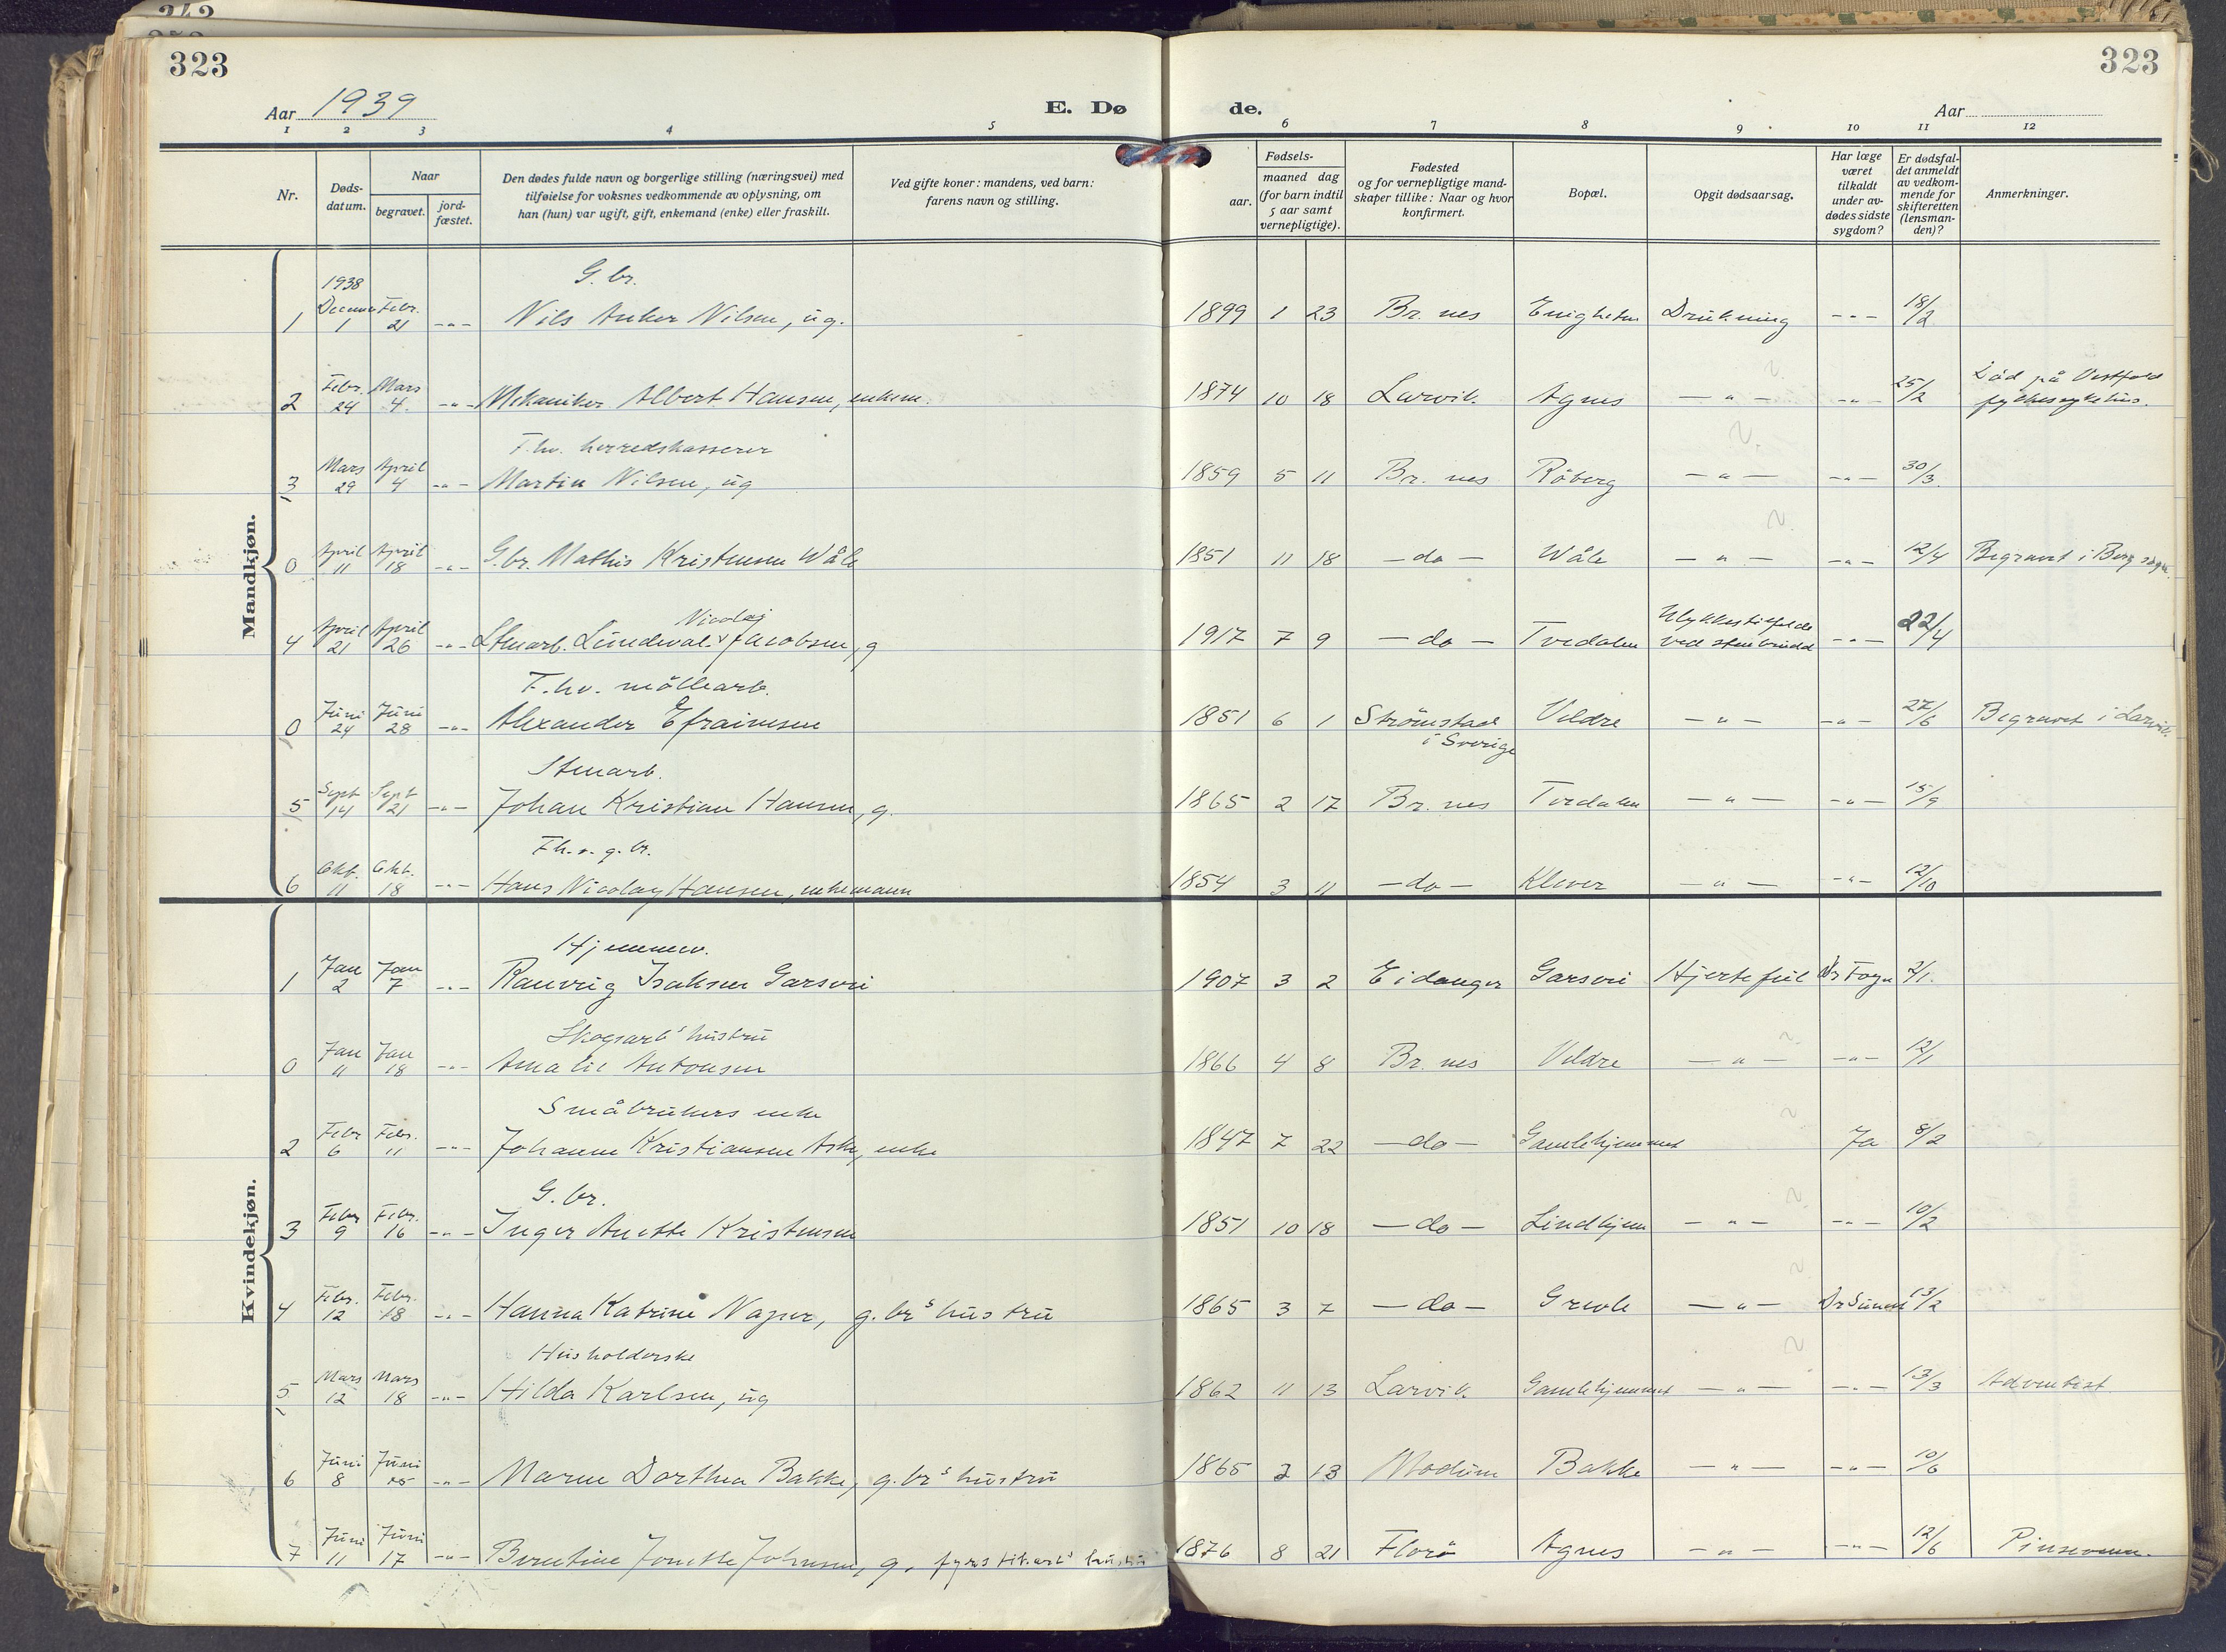 342
323
323
Aar 1939
E. Dø
de.
Aar
1 2 3 4 5 6 7 8 9 10 11 12
Nr.
Døds-
datum.
Naar
begravet.
jord-
fæstet.
Den dødes fulde navn og borgerlige stilling (næringsvei) med
tilføielse for voksnes vedkommende av oplysning, om
han (hun) var ugift, gift, enkemand (enke) eller fraskilt.
Ved gifte koner: mandens, ved barn:
farens navn og stilling.
Fødsels-
aar.
maaned dag
(for barn indtil
5 aar samt
vernepligtige).
Fødested
og for vernepligtige mand-
skaper tillike: Naar og hvor
konfirmert.
Bopæl.
Opgit dødsaarsag.
Har læge
været
tilkaldt
under av-
dødes sidste
sygdom?
Er dødsfal-
det anmeldt
av vedkom-
mende for
skifteretten
(lensman-
den)?
Anmerkninger.
Mandkjøn.
1938
G. br.
1 1 Febr. 21 -"- Nils Anker Nilsen, ug. 1899 1 23 Br.nes Drukning -"- 18/2
2 Febr. 24 Mars 4 -"- Mekaniker Albert Hansen, enkem. 1874 10 18 Larvik Agnes -"- -"- 25/2 Död på Vestfold
fylkessykehus.
F.hv. herredskasserer
3 Mars 29 April 4 -"- Martin Nilsen, ug 1859 5 11 Br.nes Råberg -"- -"- 30/3
0 April 11 April 18 -"- G.br. Mathis Kristensen Wåle 1851 11 18 -do- Wåle -"- -"- 12/4 Begravet i Berg sogn.
Nicolaj
Ulykkestilfelde
4 April 21 April 26 -"- Stenarb. Jacobsen, g 1917 7 9 -do- Tvedalen ved stenbrudd -"- 22/4
F.hv. möllearb.
0 Juni 24 Juni 28 -"- Alexander Efraimsen 1851 6 1 Strömstad Veldre -"- -"- 27/6 Begravet i Larvik.
i Sverige
Stenarb.
5 Sept 14 Sept 21 -"- Johan Kristian Hansen, g. 1865 2 17 Br.nes Tvedalen -"- -"- 15/9
Fh.v. g.br.
6 Okt. 11 Okt. 18 -"- Hans Nicolay Hansen, enkemann 1854 3 11 -do- Klever -"- -"- 12/10
Kvindekjøn.
Hjemmev.
1 Jan 2 Jan 7 -"- Ranveig Isaksen Garsvei 1907 3 2 Eidanger Garsvei Hjertefeil 3/1.
Skogsarbs hustru
0 Jan 11 Jan 18 -"- Amalie Antonsen 1866 4 8 Br.nes Veldre -"- -"- 12/1
Småbrukers enke
2 Febr 6 Febr. 11 -"- Johanne Kristiansen Ask, enke 1847 7 22 -do- Gamlehjemmet Ja 8/2
G. br.
3 Febr 9 Febr. 16 -"- Inger Anette Kristensen 1851 10 18 -do- Lindhjem -"- -"- 10/2
4 Febr. 12 Febr. 18 -"- Hanna Katrine Naper, g.brs hustru 1865 3 7 -do- -"- 13/2
Husholderske
5 Mars 12 Mars 18 -"- Hilda Karlsen, ug 1862 11 13 Larvik Gamlehjemmet -"- -"- 13/3 Adventist
6 Juni 8 Juni 15 -"- Maren Dorthea Bakke, g.brs hustru 1865 2 13 Modum Bakke -"- -"- 10/6
7 Juni 11 Juni 17 -"- Berntine Jonette Johnsen, g. hustru 1876 8 21 Florö Agnes -"- -"- 12/6 Pinsevenn.